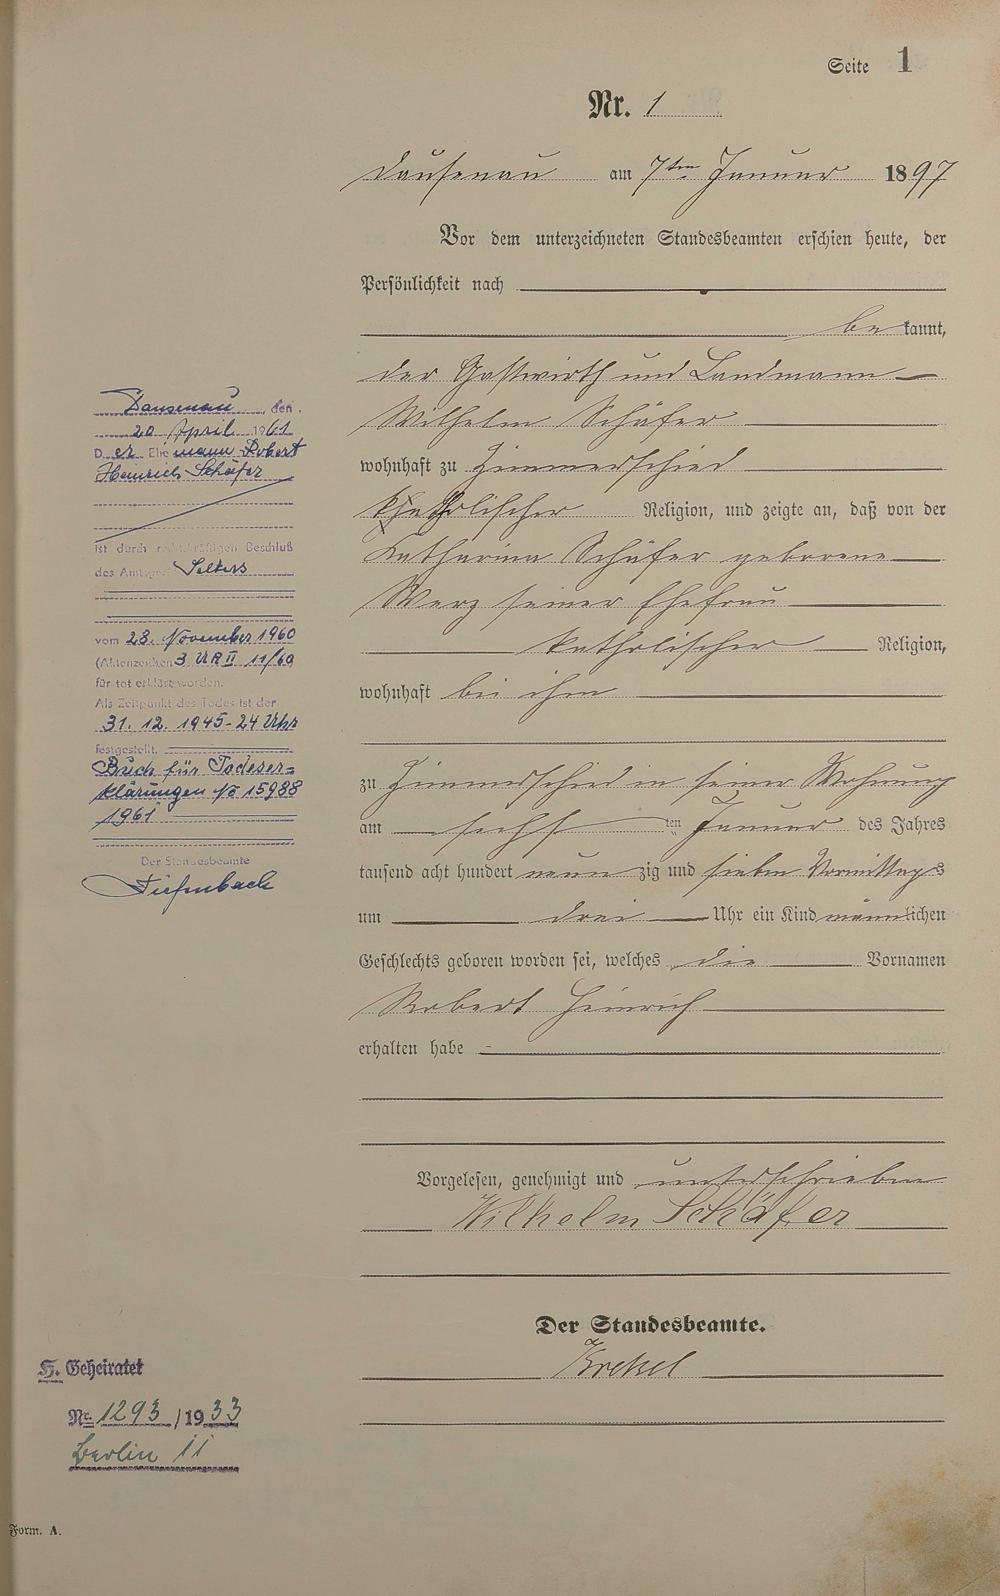 Seite 1
Nr. 1
Dausenau am 7ten Januar 1897
Vor dem unterzeichneten Standesbeamten erschien heute, der
Persönlichkeit nach
bekannt,
der Gastwirth und Landmann
Wilhelm Schäfer
wohnhaft zu Zimmerschied
katholischer Religion, und zeigte an, daß von der
Katharina Schäfer geborene
Merz seiner Ehefrau
katholischer Religion,
wohnhaft bei ihm
zu Zimmerschied in seiner Wohnung
am sechsten Januar des Jahres
tausend acht hundert neunzig und sieben Vormittags
um drei Uhr ein Kind männlichen
Geschlechts geboren worden sei, welches die Vornamen
Robert Heinrich
erhalten habe
Vorgelesen, genehmigt und unterschrieben
Wilhelm Schäfer
Der Standesbeamte.
Krekel
Dausenau, den
20 April 1961
Der Ehemann Robert
Heinrich Schäfer
ist durch rechtskräftigen Beschluß
des Amtsger. Selters
vom 28. November 1960
(Aktenzeichen 3 UR II 11/60
für tot erklärt worden.
Als Zeitpunkt des Todes ist der
31. 12. 1945 - 24 Uhr
festgestellt.
Buch für Todeser=
klärungen No 15988
1961
Der Standesbeamte
Tiefenbach
H. Geheiratet
Nr. 1293/1933
Berlin 11
Form. A.